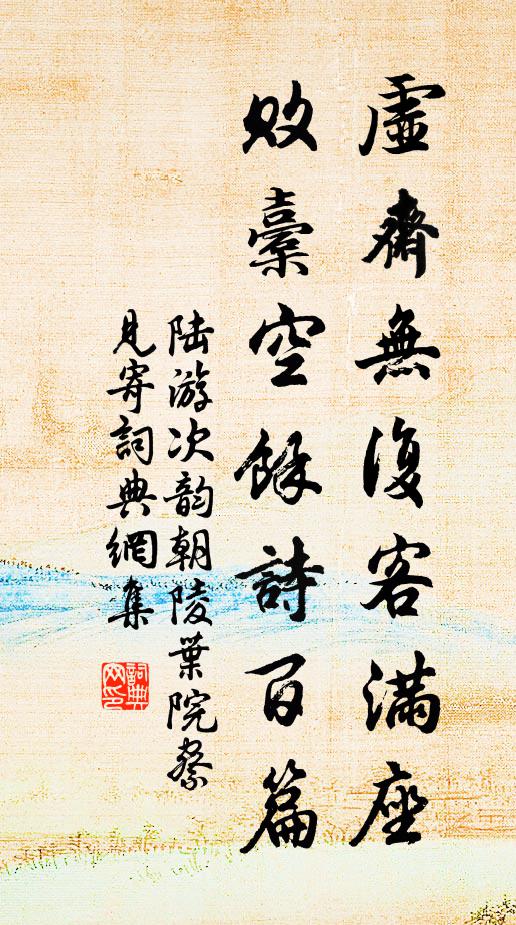 虛齋無復客滿座
敗橐空餘詩百篇
陸游次韵朝陵葉院察
見寄詞典網集
詞典
网印